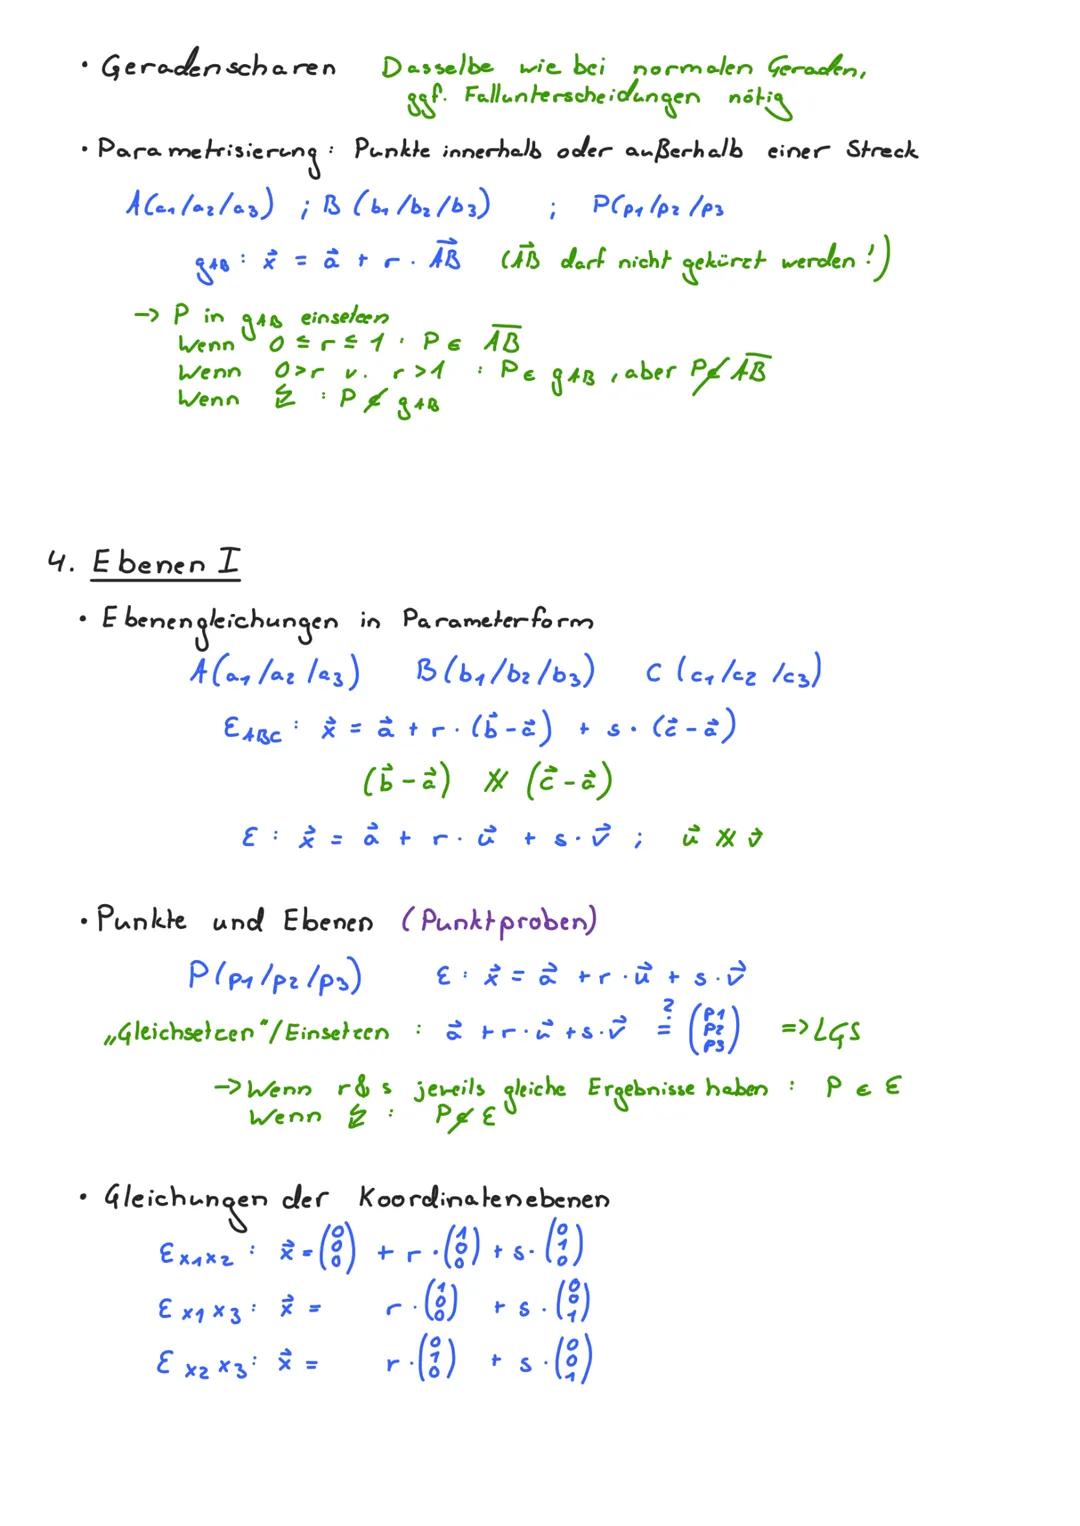 • Geradenscharen Dasselbe wie bei normalen Geraden,
ggf. Fallunterscheidungen nötig
• Parametrisierung: Punkte innerhalb oder außerhalb einer Streck
A(a₁/a₂/a₃) ; B(b₁/b₂/b₃) ; P(p₁/p₂/p₃
g_AB : x⃗ = a⃗ + r · A⃗B⃗ (A⃗B⃗ darf nicht gekürzt werden!)
-> P in g_AB einsetzen
Wenn 0 ≤ r ≤ 1 : P ∈ A̅B̅
Wenn 0>r v. r>1 : P ∈ g_AB, aber P ∉ A̅B̅
Wenn ↯ : P ∉ g_AB
4. Ebenen I
• Ebenengleichungen in Parameterform
A(a₁/a₂/a₃) B(b₁/b₂/b₃) C(c₁/c₂/c₃)
E_ABC : x⃗ = a⃗ + r · (b⃗ - a⃗) + s · (c⃗ - a⃗)
(b⃗ - a⃗) ∦ (c⃗ - a⃗)
E : x⃗ = a⃗ + r · u⃗ + s · v⃗ ; u⃗ ∦ v⃗
• Punkte und Ebenen (Punktproben)
P(p₁/p₂/p₃) E : x⃗ = a⃗ + r · u⃗ + s · v⃗
„Gleichsetzen"/Einsetzen : a⃗ + r · u⃗ + s · v⃗ ≟ (p1 p2 p3) => LGS
-> Wenn r & s jeweils gleiche Ergebnisse haben : P ∈ E
Wenn ↯ : P ∉ E
• Gleichungen der Koordinatenebenen
E x₁x₂ : x⃗ = (0 0 0) + r · (1 0 0) + s · (0 1 0)
E x₁x₃ : x⃗ = r · (1 0 0) + s · (0 0 1)
E x₂x₃ : x⃗ = r · (0 1 0) + s · (0 0 1)